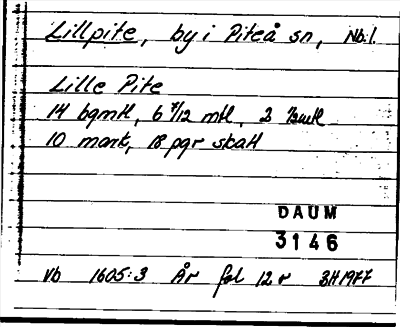 Lillpite, by i Piteå sn, Nb.l.
Lille Pite
14 bgmtl, 6 7/12 mtl, 2 1/2mtl
10 mark, 18 pgr skatt
DAUM
3146
Vb 1605:3 År fol 12 r BH 1977